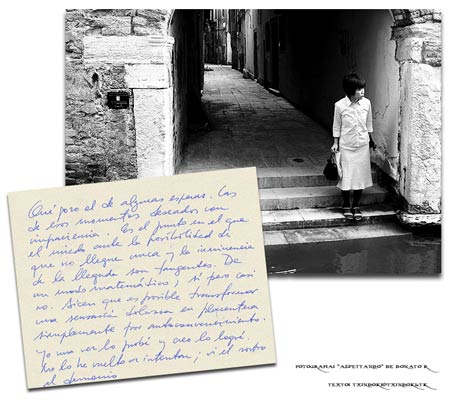 Qué el de algunas esperas. Las
de esos momentos deseados con
impaciencia. Es el punto en el que
el miedo ante la posibilidad de
que no llegue nunca y la inminencia
de la llegada son tangentes. De
un modo matemático, sí pero casi
no. Dicen que es posible transformar
una sensación dolorosa en placentera
simplemente por autoconvencimiento.
Yo una vez lo probé y creo lo logré.
No lo he vuelto a intentar; vi el rostro
al demonio
FOTOGRAFIA: "ASPETTANDO" DE DONATO R
TEXTO: